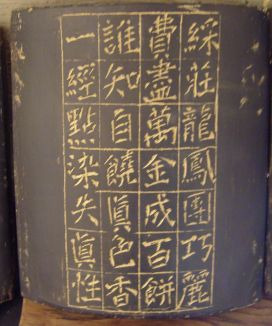 綵莊龍鳳團巧麗
費盡萬金成百餅
誰知自饒真色香
一經點染失真性